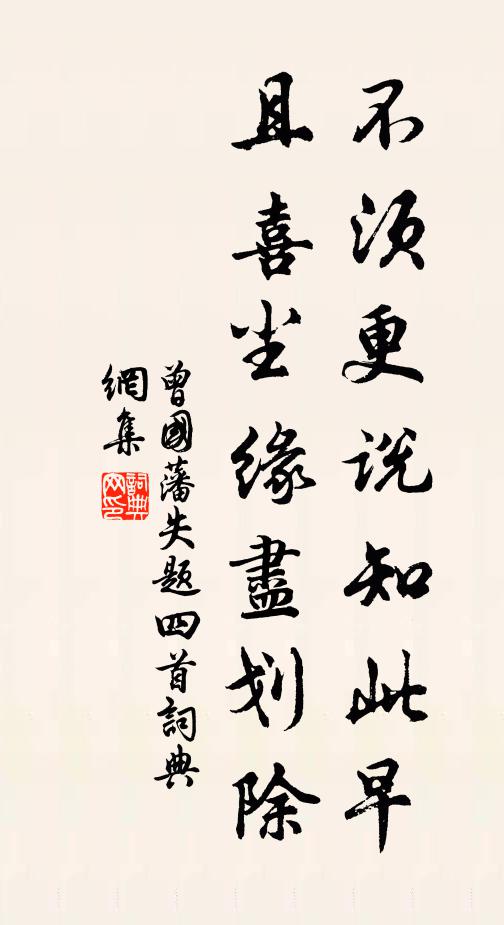 不須更說知此早
且喜尘緣盡划除
曾國藩失題四首詞典
網集
詞典網印